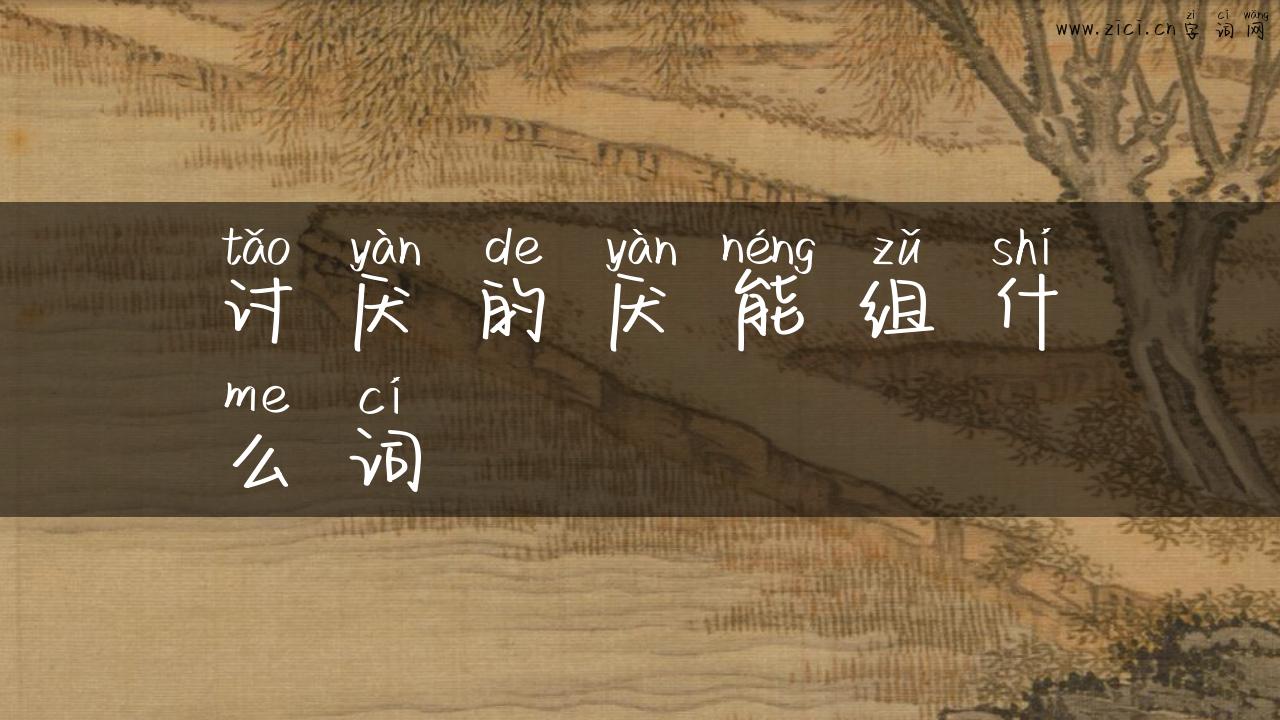 zì cí wǎng
www.zici.cn 字 词 网
tǎo yàn de yàn néng zǔ shí
讨 厌 的 厌 能 组 什
me cí
么 词